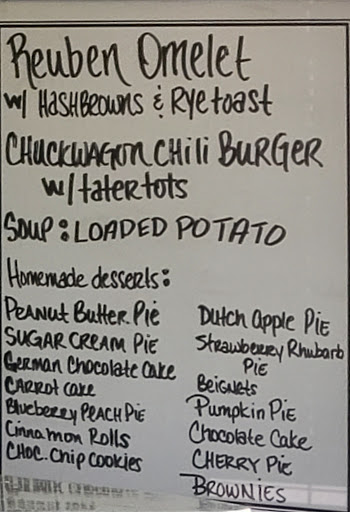 Reuben Omelet
w/ HASHBROWNS & RYE toast
CHUCKWAGON CHILI BURGER
w/ tater tots
SOUP: LOADED POTATO
Homemade desserts:
PEANUT BUTTER PIE
SUGAR CREAM PIE
German Chocolate Cake
CARROT CAKE
Blueberry PEACH PIE
Cinnamon Rolls
CHOC. Chip Cookies
Dutch Apple PIE
Strawberry Rhubarb
PIE
Beignets
Pumpkin PIE
Chocolate Cake
CHERRY PIE
BROWNIES